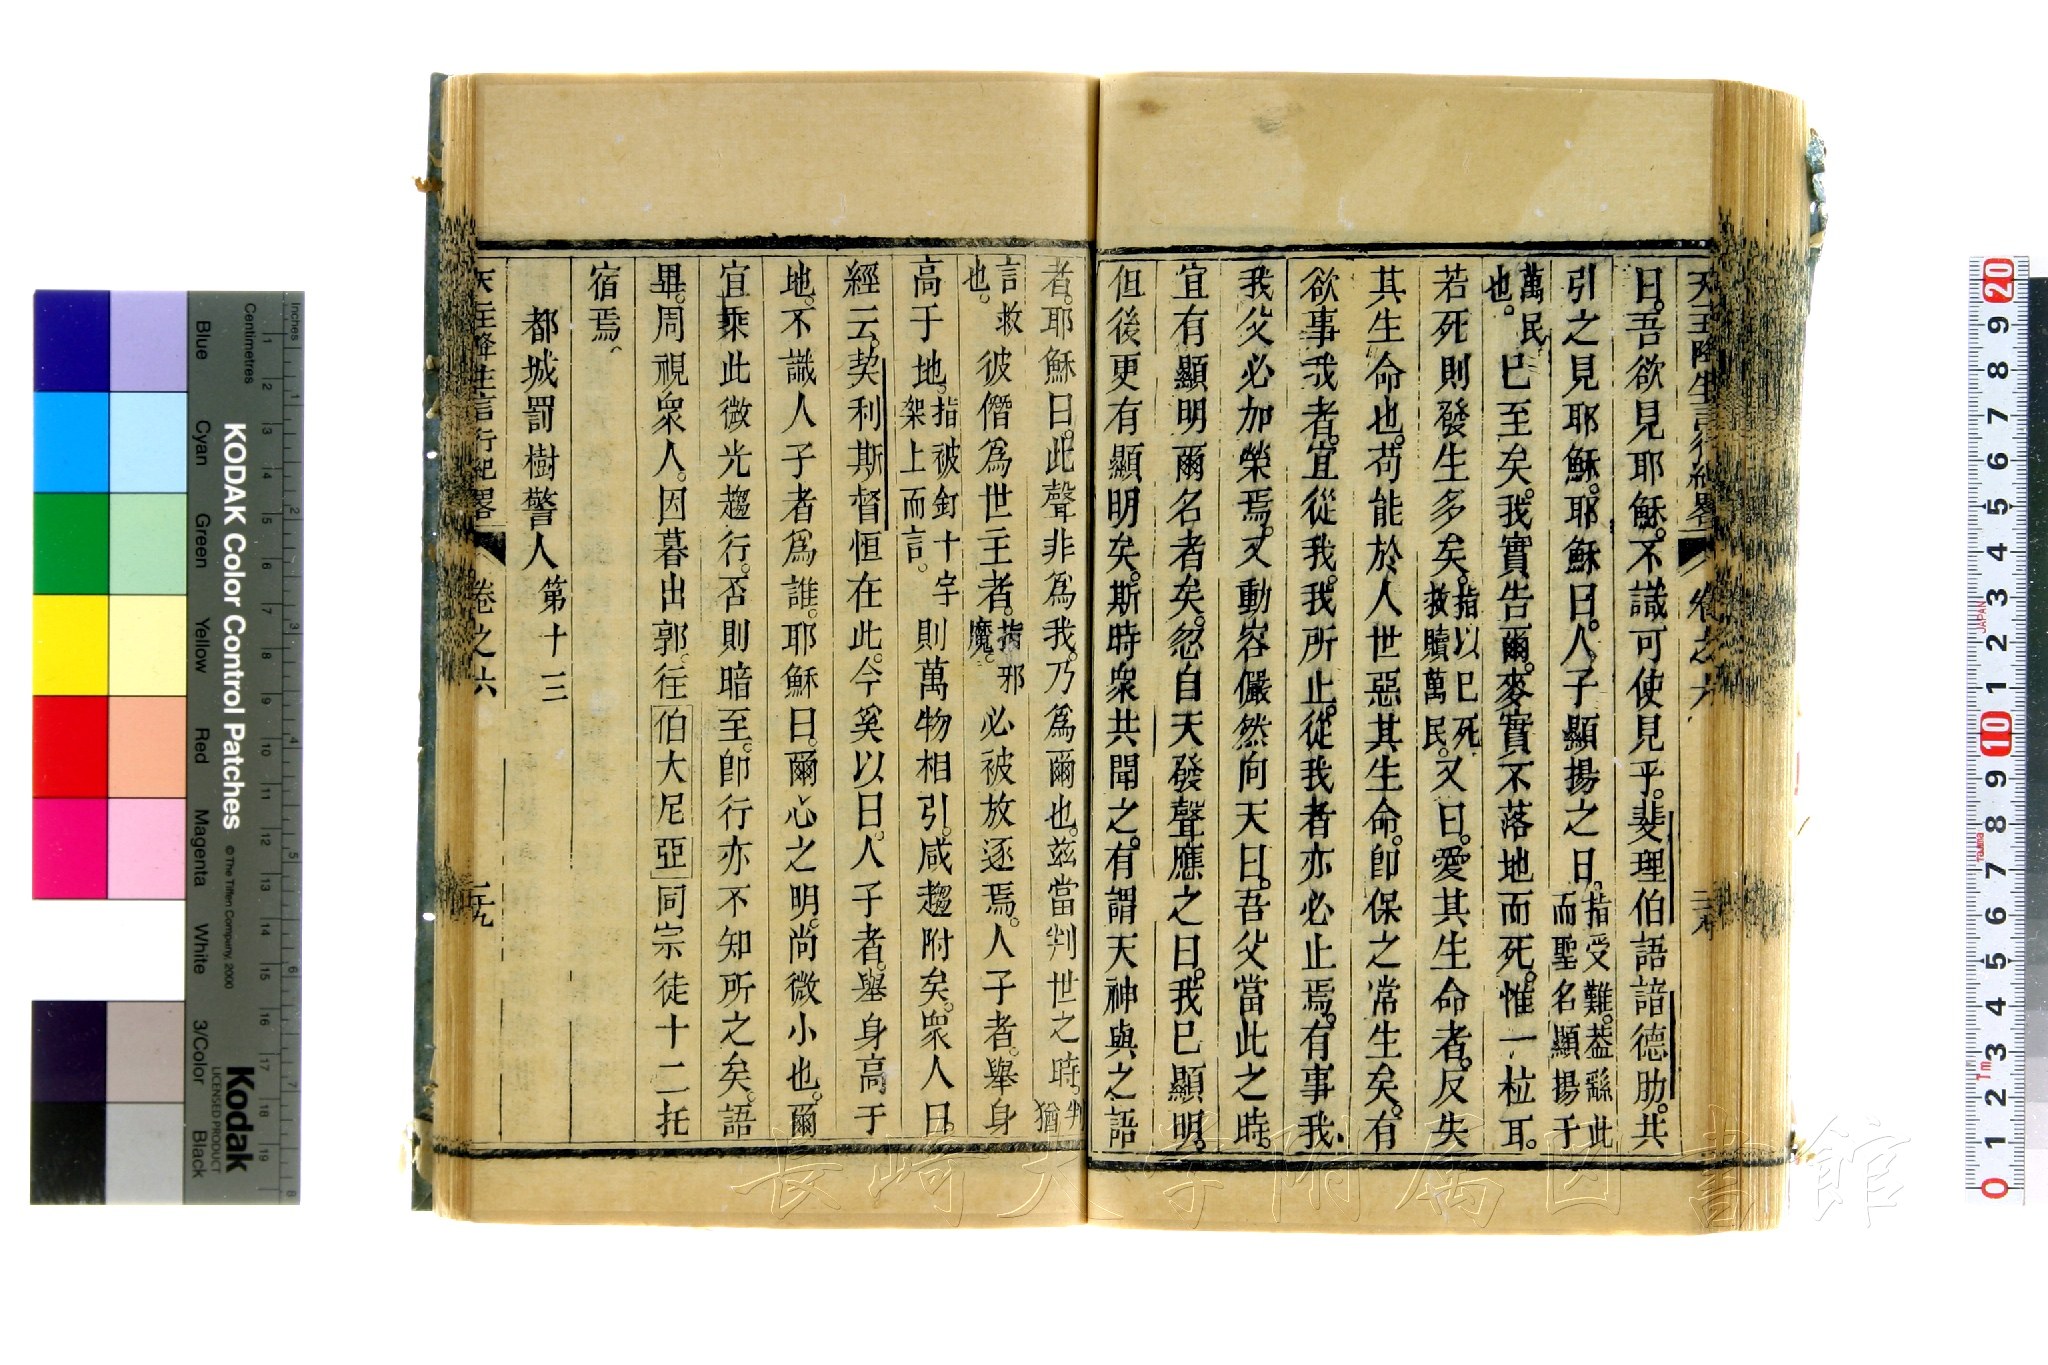 天主降生言行紀畧 卷之六
曰。吾欲見耶穌。不識可使見乎。斐理伯語諳德肋。共
引之見耶穌。耶穌曰。人子顯揚之日。指受難。葢繇此而聖名顯揚于
萬民也。已至矣。我實告爾。麥實不落地而死。惟一粒耳。
若死則發生多矣。指以已死救贖萬民。又曰。愛其生命者。反失
其生命也。苟能於人世惡其生命。卽保之常生矣。有
欲事我者。宜從我。我所止。從我者亦必止焉。有事我。
我父必加榮焉。又動容儼然向天曰。吾父當此之時。
宜有顯明爾名者矣。忽自天發聲應之曰。我已顯明。
但後更有顯明矣。斯時衆共聞之。有謂天神與之語
者。耶穌曰。此聲非爲我。乃爲爾也。茲當判世之時。判猶
言救也。彼僭爲世主者。指邪魔。必被放逐焉。人子者。舉身
高于地。指被釘十字架上而言。則萬物相引。咸趨附矣。衆人曰。
經云。契利斯督恒在此。今奚以曰。人子者。舉身高于
地。不識人子者爲誰。耶穌曰。爾心之明。尚微小也。爾
宜乘此微光趨行。否則暗至。卽行亦不知所之矣。語
畢。周視衆人。因暮出郭。往伯大尼亞同宗徒十二托
宿焉。
都城罰樹警人 第十三
天主降生言行紀畧 卷之六 二九
長崎大学附属図書館
KODAK Color Control Patches
© The Tiffen Company, 2000
Kodak
LICENSED PRODUCT
Inches
Centimetres
Blue Cyan Green Yellow Red Magenta White 3/Color Black
1 2 3 4 5 6 7 8 9 10 11 12 13 14 15 16 17 18 19
1 2 3 4 5 6 7 8
0 1 2 3 4 5 6 7 8 9 10 1 2 3 4 5 6 7 8 9 20
JAPAN